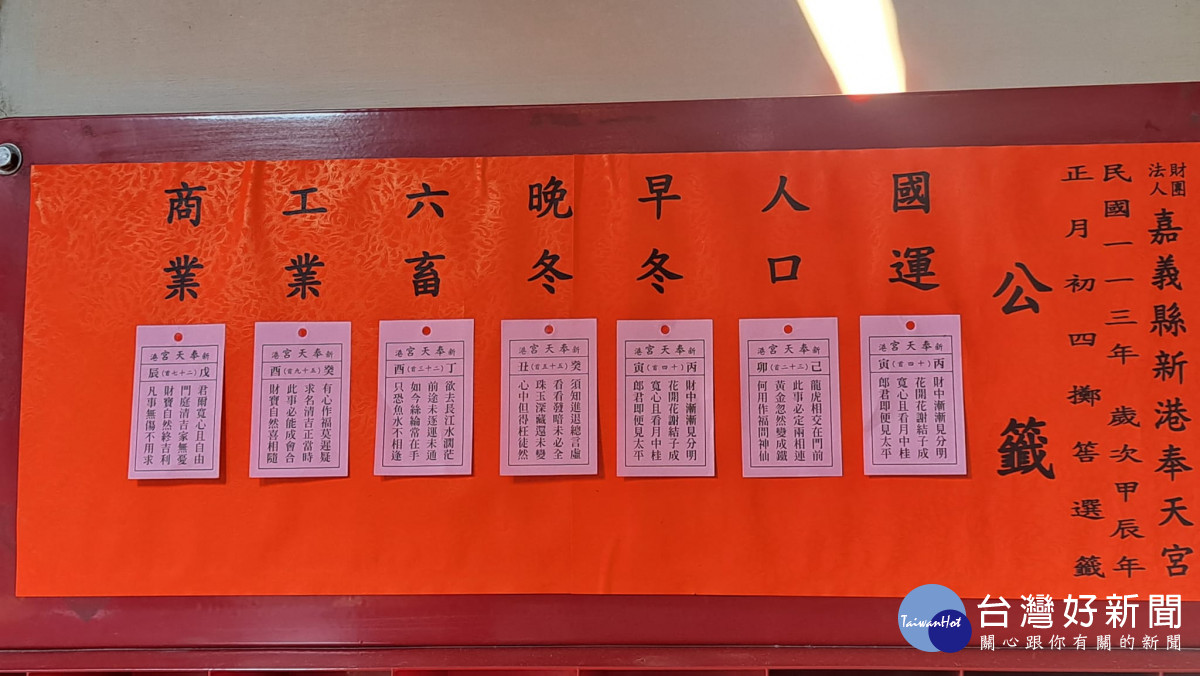 財團法人
嘉義縣新港奉天宮
民國一一三年 歲次甲辰年
正月初四擲筶選籤
公籤
國運
新奉天宮港
丙(十四首)寅
財中漸漸見分明
花開花謝結子成
寬心且看月中桂
郎君即便見太平
人口
新奉天宮港
己(三十二首)卯
龍虎相交在門前
此事必定兩相連
黃金忽然變成鐵
何用作福問神仙
早冬
新奉天宮港
丙(十四首)寅
財中漸漸見分明
花開花謝結子成
寬心且看月中桂
郎君即便見太平
晚冬
新奉天宮港
癸(五十五首)丑
須知進退總言虛
看看發暗未必全
珠玉深藏還未變
心中但得枉徒然
六畜
新奉天宮港
丁(二十三首)酉
欲去長江水濶茫
前途未逐運未通
如今絲綸常在手
只恐魚水不相逢
工業
新奉天宮港
癸(五十九首)酉
有心作福莫遲疑
求名清吉正當時
此事必能成會合
財寶自然喜相隨
商業
新奉天宮港
戊(二十七首)辰
君爾寬心且自由
門庭清吉家無憂
財寶自然終吉利
凡事無傷不用求
TaiwanHot
台灣好新聞
關心跟你有關的新聞